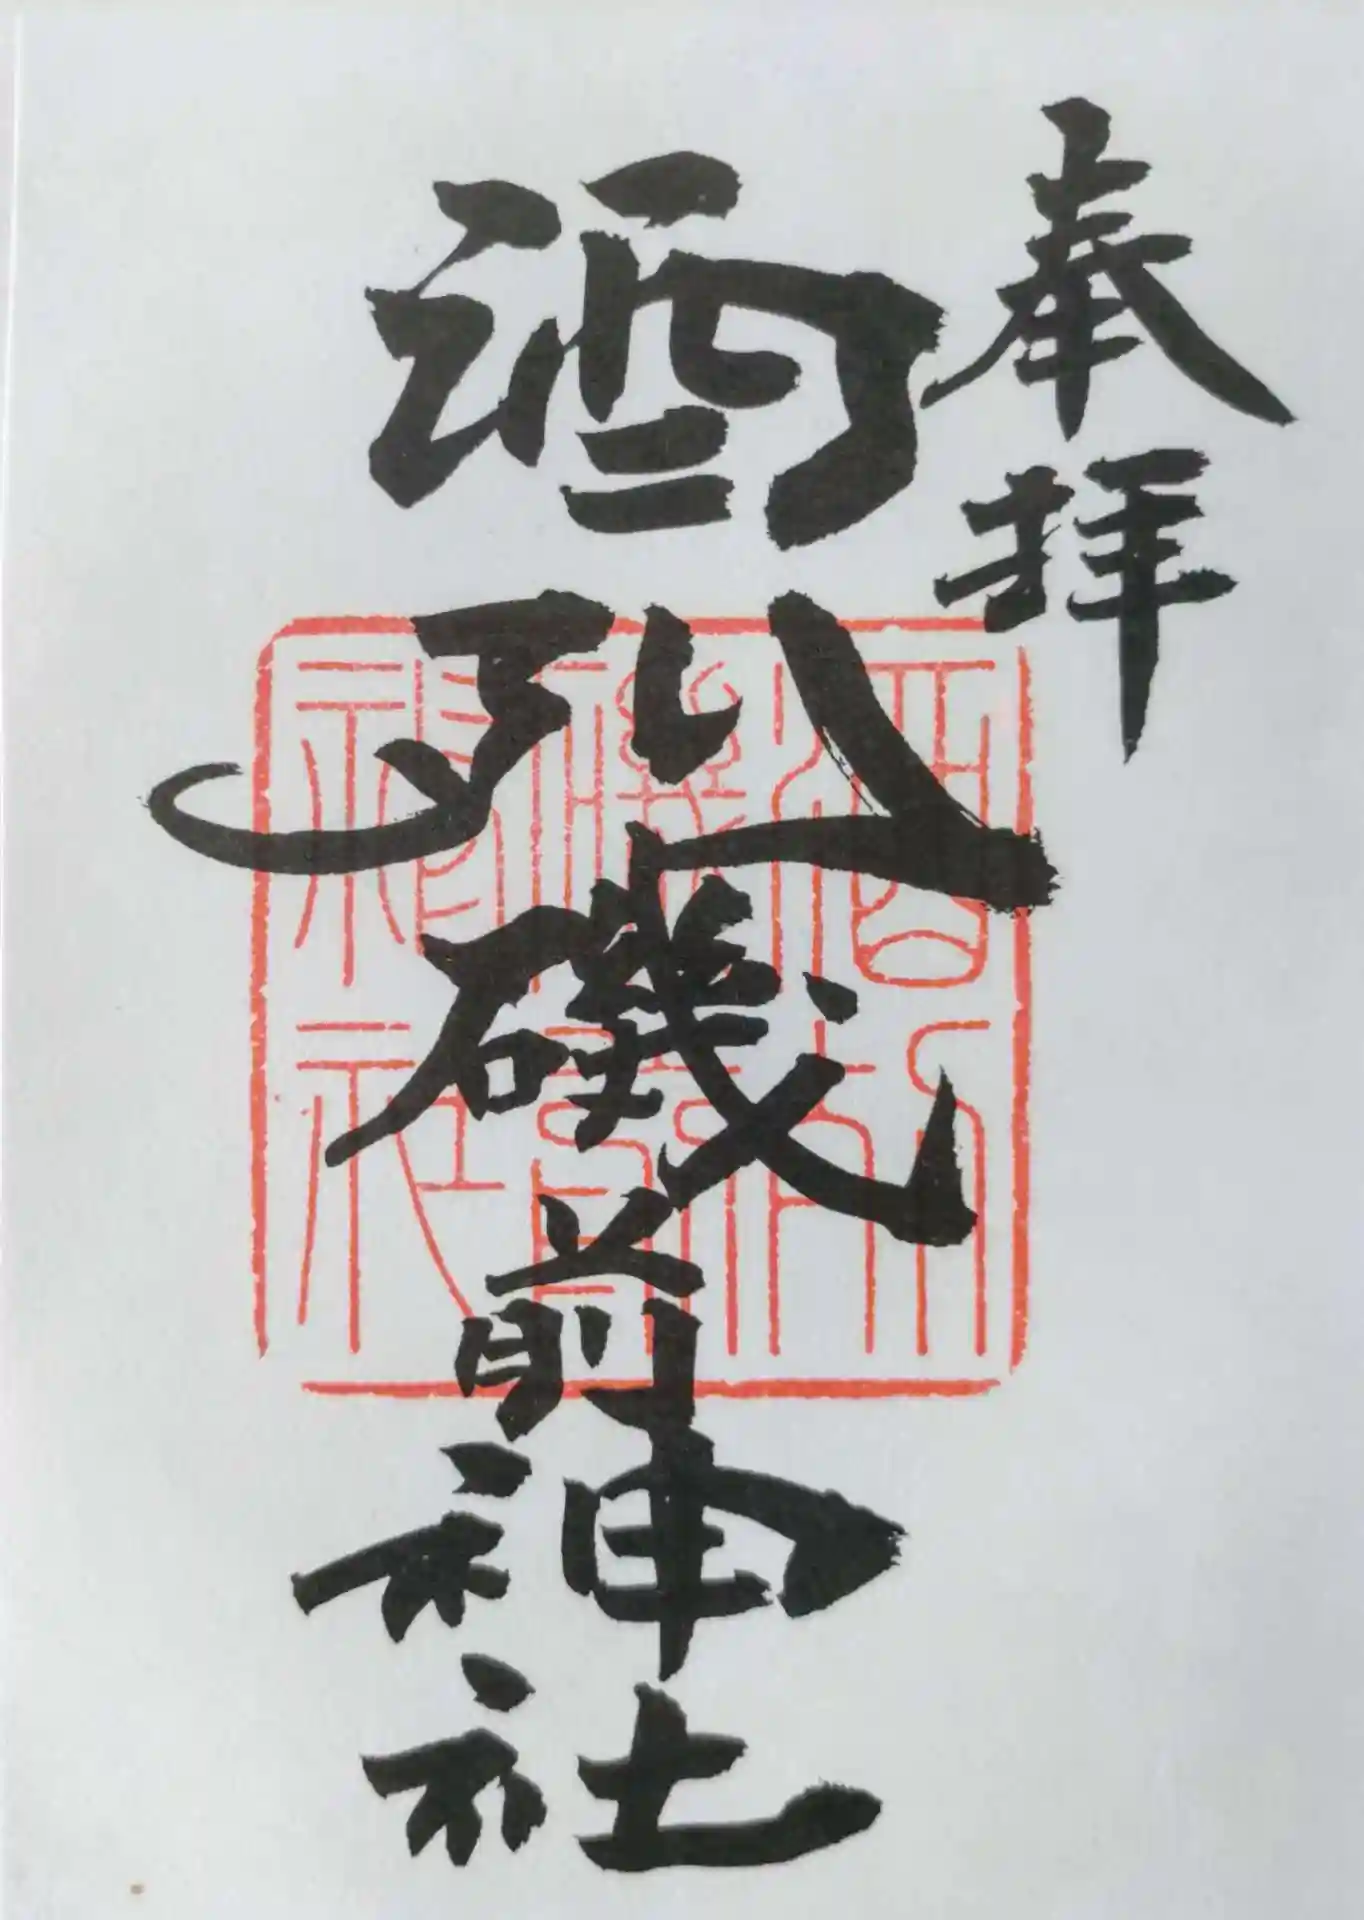 奉拝
酒列磯前神社
酒列
磯前
神社